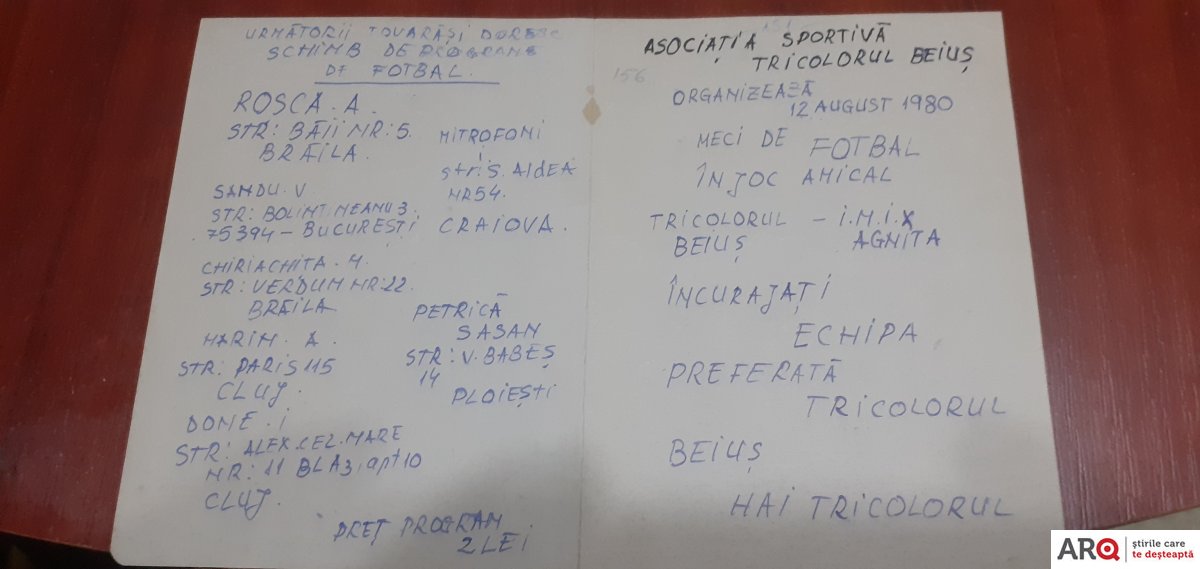 URMĂTORII TOVARĂȘI DORESC
SCHIMB DE PROGRAME
DE FOTBAL.
ROȘCĂ. A.
STR: BĂII NR: 5.
BRĂILA.
SANDU. V
STR: BOLINTINEANU 3.
75394 - BUCUREȘTI
CHIRIACHIȚA. M.
STR: VERDUM NR: 22.
BRĂILA
MARIN. A.
STR: PARIS 115
CLUJ.
DONE. I
STR: ALEX. CEL. MARE
NR: 11 BLA3, apt 10
CLUJ.
MITROFONI
str: S. AldEA
NR 54.
CRAIOVA.
PETRICĂ
SASAN
STR: V. BABEȘ
14
PLOIEȘTI
PREȚ PROGRAM
2 LEI
156
ASOCIAȚIA SPORTIVĂ
TRICOLORUL BEIUȘ
ORGANIZEAZĂ
12 AUGUST 1980
MECI DE FOTBAL
ÎN JOC AMICAL
TRICOLORUL - I.M.I.X
BEIUȘ AGNITA
ÎNCURAJAȚI
ECHIPA
PREFERATĂ
TRICOLORUL
BEIUȘ
HAI TRICOLORUL
ARQ știrile care
te deșteaptă